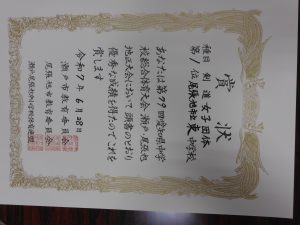 賞状
種目 剣道女子団体
第1位 尾張旭市立東中学校
あなたは第79回愛知県中学
校総合体育大会瀬戸、尾張旭
地区大会において頭書のとおり
優秀な成績を得たのでこれを
賞します
令和7年6月28日
瀬戸市教育委員会
尾張旭市教育委員会